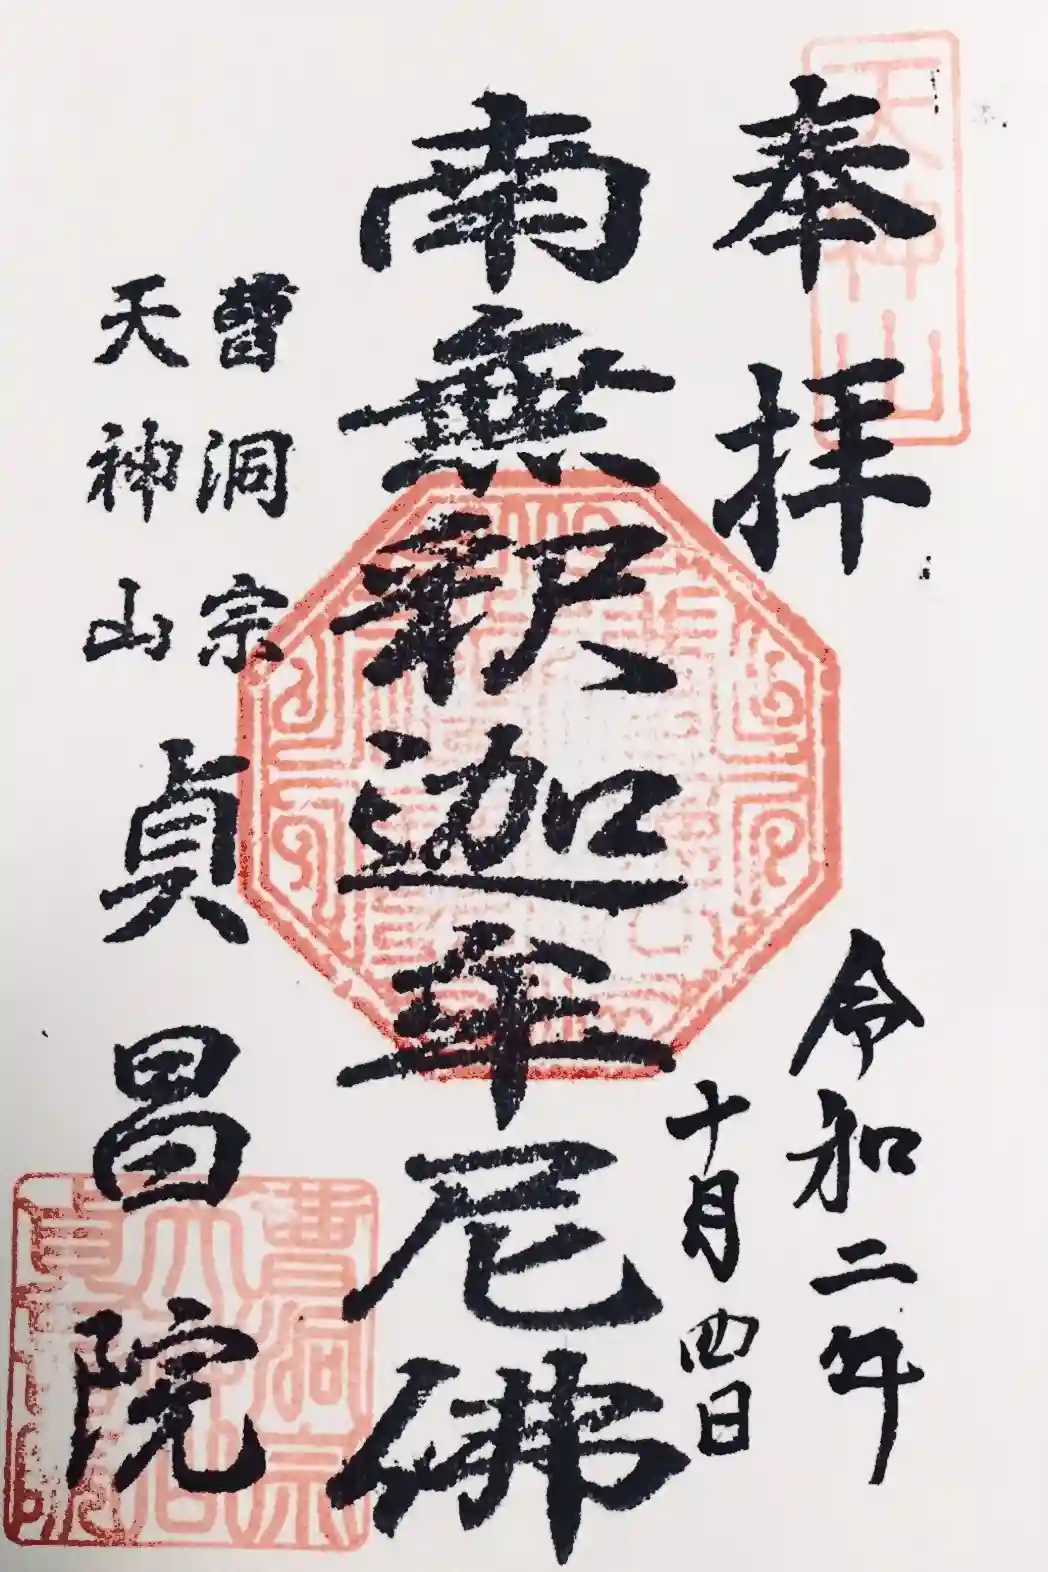 奉拝
天神山
令和二年
十月四日
南無釈迦牟尼佛
曹洞宗
天神山
貞昌院
曹洞宗
天神山
貞昌院